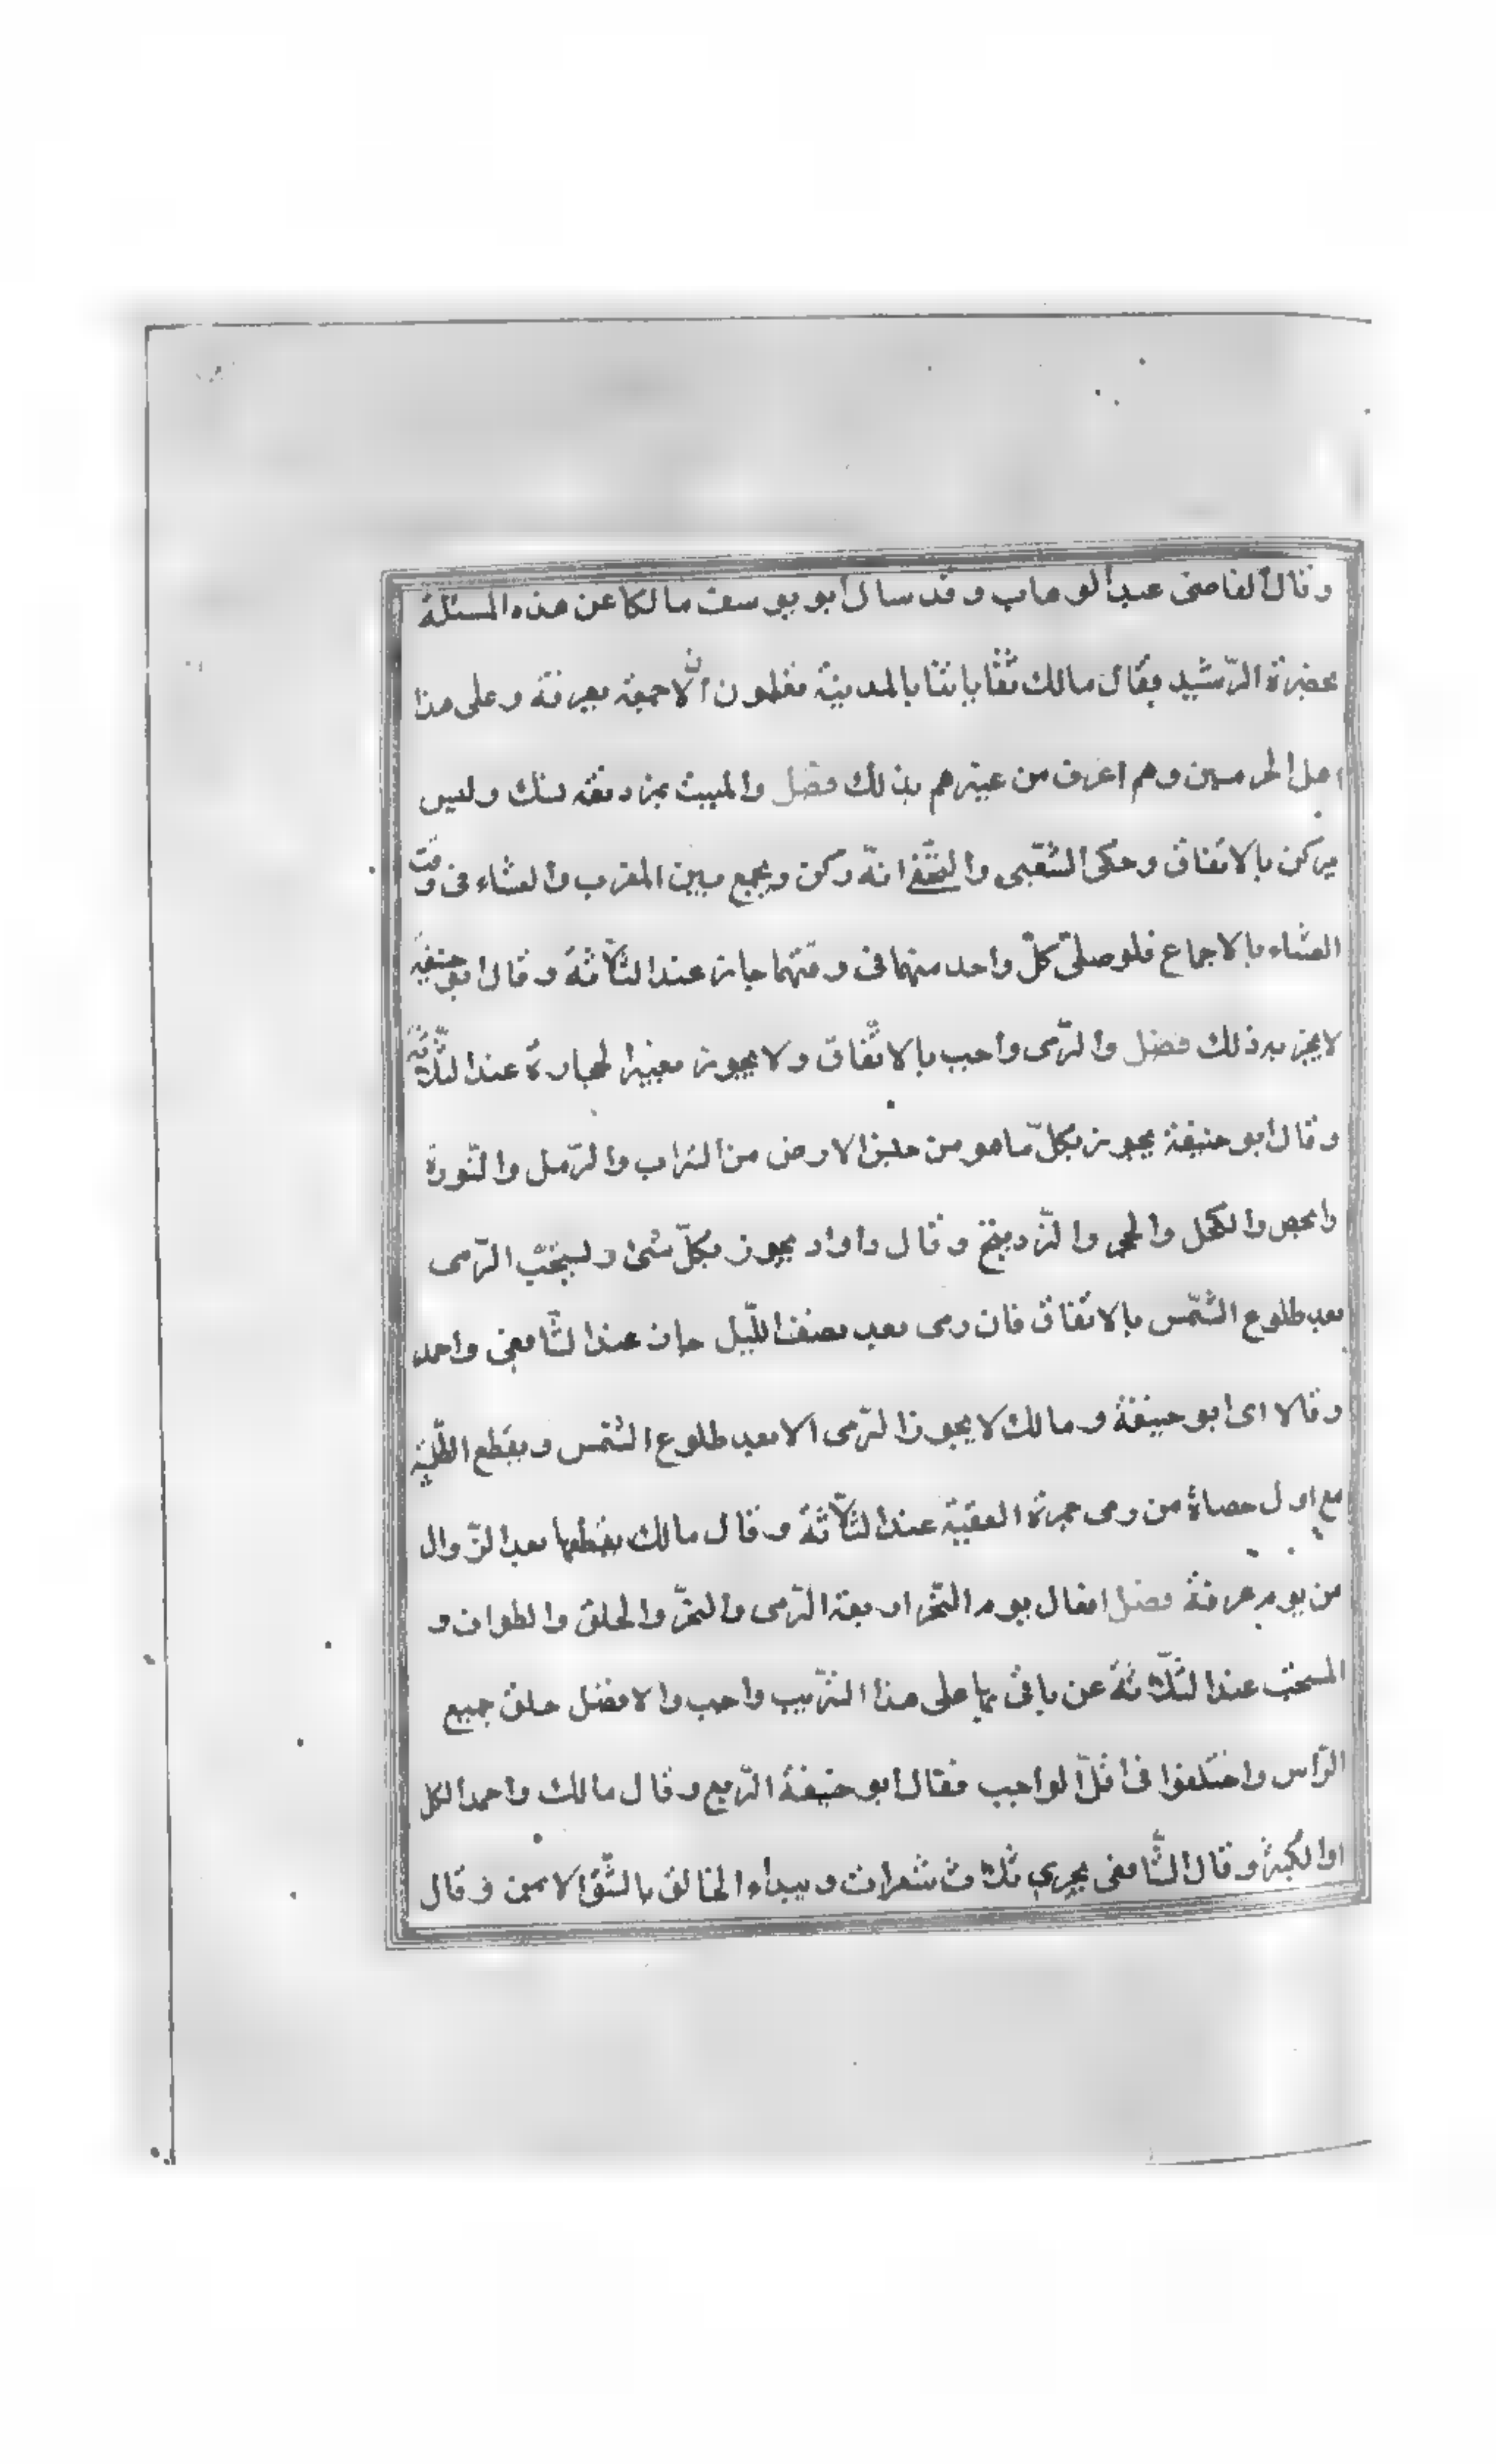 وقال القاضى عبد الوهاب وقد سال ابو يوسف مالكا عن هذه المسئلة
بحضرة الرّشيد فقال مالك ثقاباتنا بالمدينة يعلمون ان لا جمعة بعرفة وعلى هذا
اهل الحرمين وهم اعرف من غيرهم بذلك فصل والمبيت بمزدلفة نسك وليس
بركن بالاتفاق وحكى الشّعبى والنّخعى انّه ركن ويجمع بين المغرب والعشاء فى وقت
العشاء بالاجماع فلو صلّى كلّ واحد منهما فى وقتهما جاز عند الثّلاثة وقال ابو حنيفة
لا يجز به ذلك فصل والرّمى واجب بالاتّفاق ولا يجوز بغير الحجارة عند الثّلاثة
وقال ابو حنيفة يجوز بكلّ ما هو من جنس الارض من التراب والرّمل والنّورة
والجص والكحل والحجر والزّرنيخ وقال داواد يجوز بكلّ شئ ويستحبّ الرّمى
بعد طلوع الشّمس بالاتفاق فان رمى بعد نصف اللّيل جاز عند الشّافعى واحمد
وقالا اى ابو حنيفة ومالك لا يجوز الرّمى الا بعد طلوع الشّمس ويقطع التّلبية
مع اول حصاة من رمى جمرة العقبة عند الثّلاثة وقال مالك يقطعها بعد الزّوال
من يوم عرفة فصل افعال يوم النّحر اربعة الرّمى والنحر والحلق والطواف و
المستحبّ عند الثّلاثة عن ياتى بها على هذا التّرتيب واجب والافضل حلق جميع
الرّأس واختلفوا فى اقلّ الواجب فقال ابو حنيفة الرّبع وقال مالك واحمد الكل
او الكبرة وقال الشّافعى يجرى ثلاث شعرات ويبداء الخالق بالشّق الايمن وقال